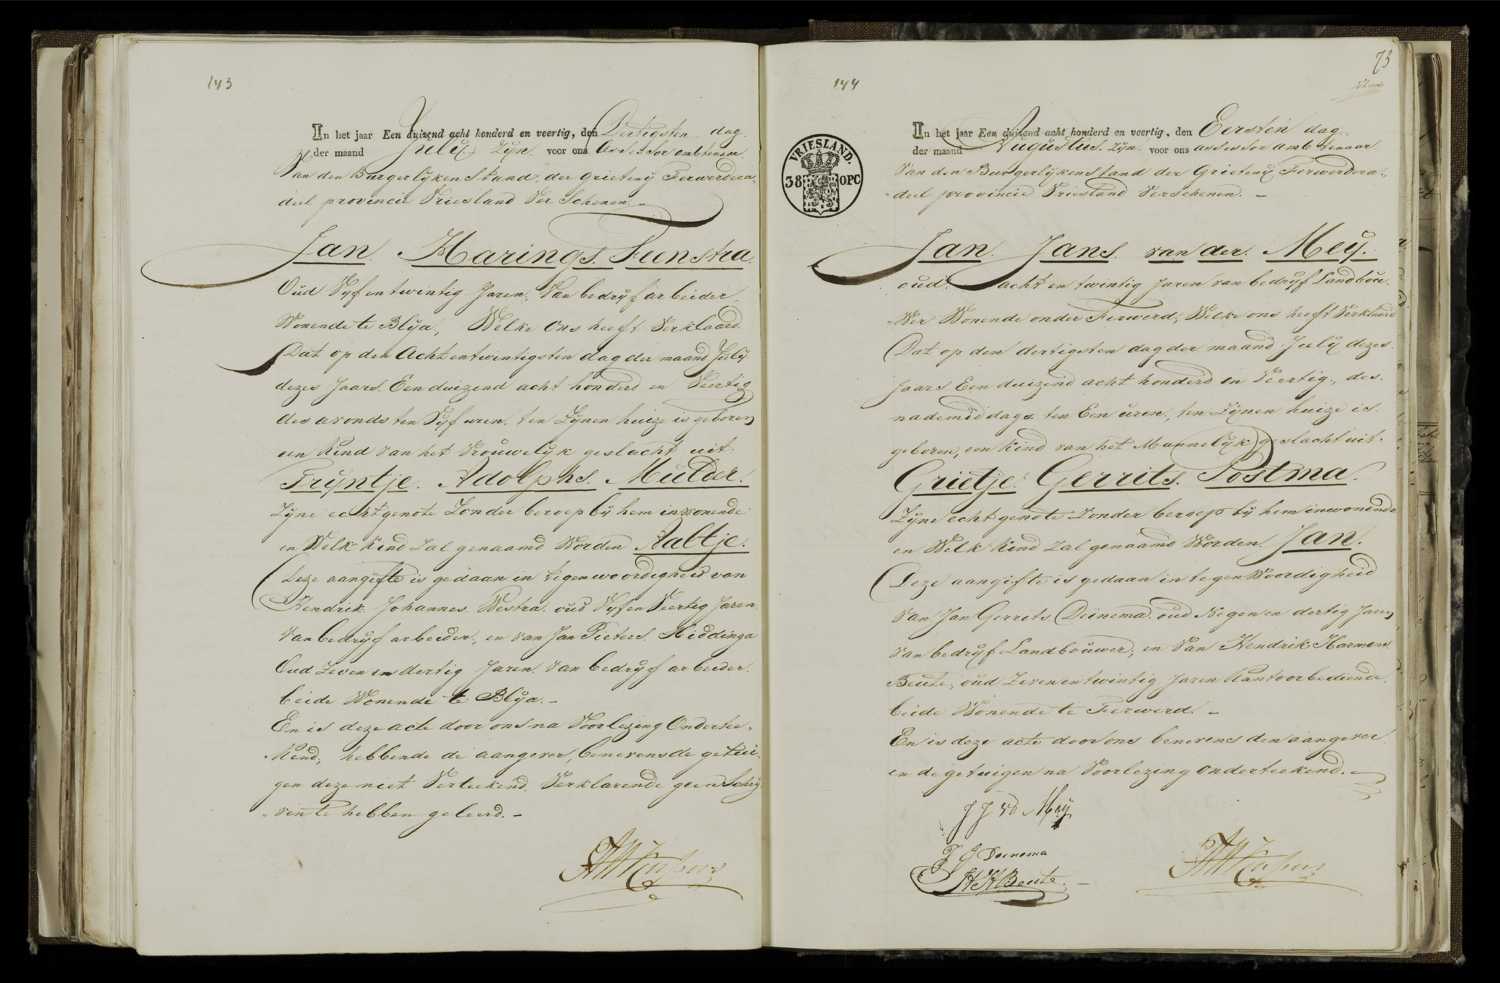 143
In het jaar Een duizend acht honderd en veertig, den Dertigsten dag
der maand July Zijn voor ons assessor ambtenaar
Van den Burgerlijken Stand der Grietenij Ferwerdera-
deel provincie Vriesland Verschenen.-
Jan Harings Funstra
Oud Vyfentwintig Jaren, Van bedryf arbeider
Wonende te Blya, Welke Ons heeft Verklaard
Dat op den Achtentwintigsten dag der maand July
dezes Jaars Een duizend acht honderd en Veertig
des avonds ten Vyf uren, ten Zynen huize is geboren
een Kind van het Vrouwelyk geslacht uit
Tryntje Adolphs Mulder.
Zyne echtgenote Zonder beroep by hem inwonende
en Welk Kind Zal genaamd Worden Aaltje.
Deze aangifte is gedaan in tegenwoordigheid van
Hendrik Johannes Westra oud Vyfen Veertig Jaren
Van bedryf arbeider, en van Jan Pieters Hiddinga
Oud Zeven en dertig Jaren Van bedryf arbeider
beide Wonende te Blya.-
En is deze acte door ons na Voorlezing Ondertee-
kend, hebbende de aangever, benevens de getui-
gen deze niet Verteekend, Verklarende geen Schry-
ven te hebben geleerd.-
144
73
VRIESLAND.
38 OPC
In het jaar Een duizend acht honderd en veertig, den Eersten dag
der maand Augustus Zijn voor ons assessor ambtenaar
Van den Burgerlyken Stand der Grieteny Ferwerdera-
deel provincie Vriesland Verschenen.-
Jan Jans van der Mey.
oud acht en twintig Jaren van bedryf Landbou-
wer Wonende onder Ferwerd, Welke ons heeft Verklaard
Dat op den dertigsten dag der maand July dezes
Jaars Een duizend acht honderd en Veertig, des
nademiddags ten Een uren, ten Zynen huize is
geboren, een Kind van het Mannelyk geslacht uit
Grietje Gerrits Postma.
Zyne echtgenote Zonder beroep by hem inwonende
en Welk Kind Zal genaamd Worden Jan.
Deze aangifte is gedaan in tegen Woordigheid
Van Jan Gerrits Doenema oud Negen en dertig Jaren
van bedryf Landbouwer, en Van Hendrik Harmens
Beute, oud Zeven en twintig Jaren Kantoorbediende
beide Wonende te Ferwerd.-
En is deze acte door ons benevens den aangever
en de getuigen na Voorlezing onderteekend.-
J J vd Mey
J G Doenema
H H Beute